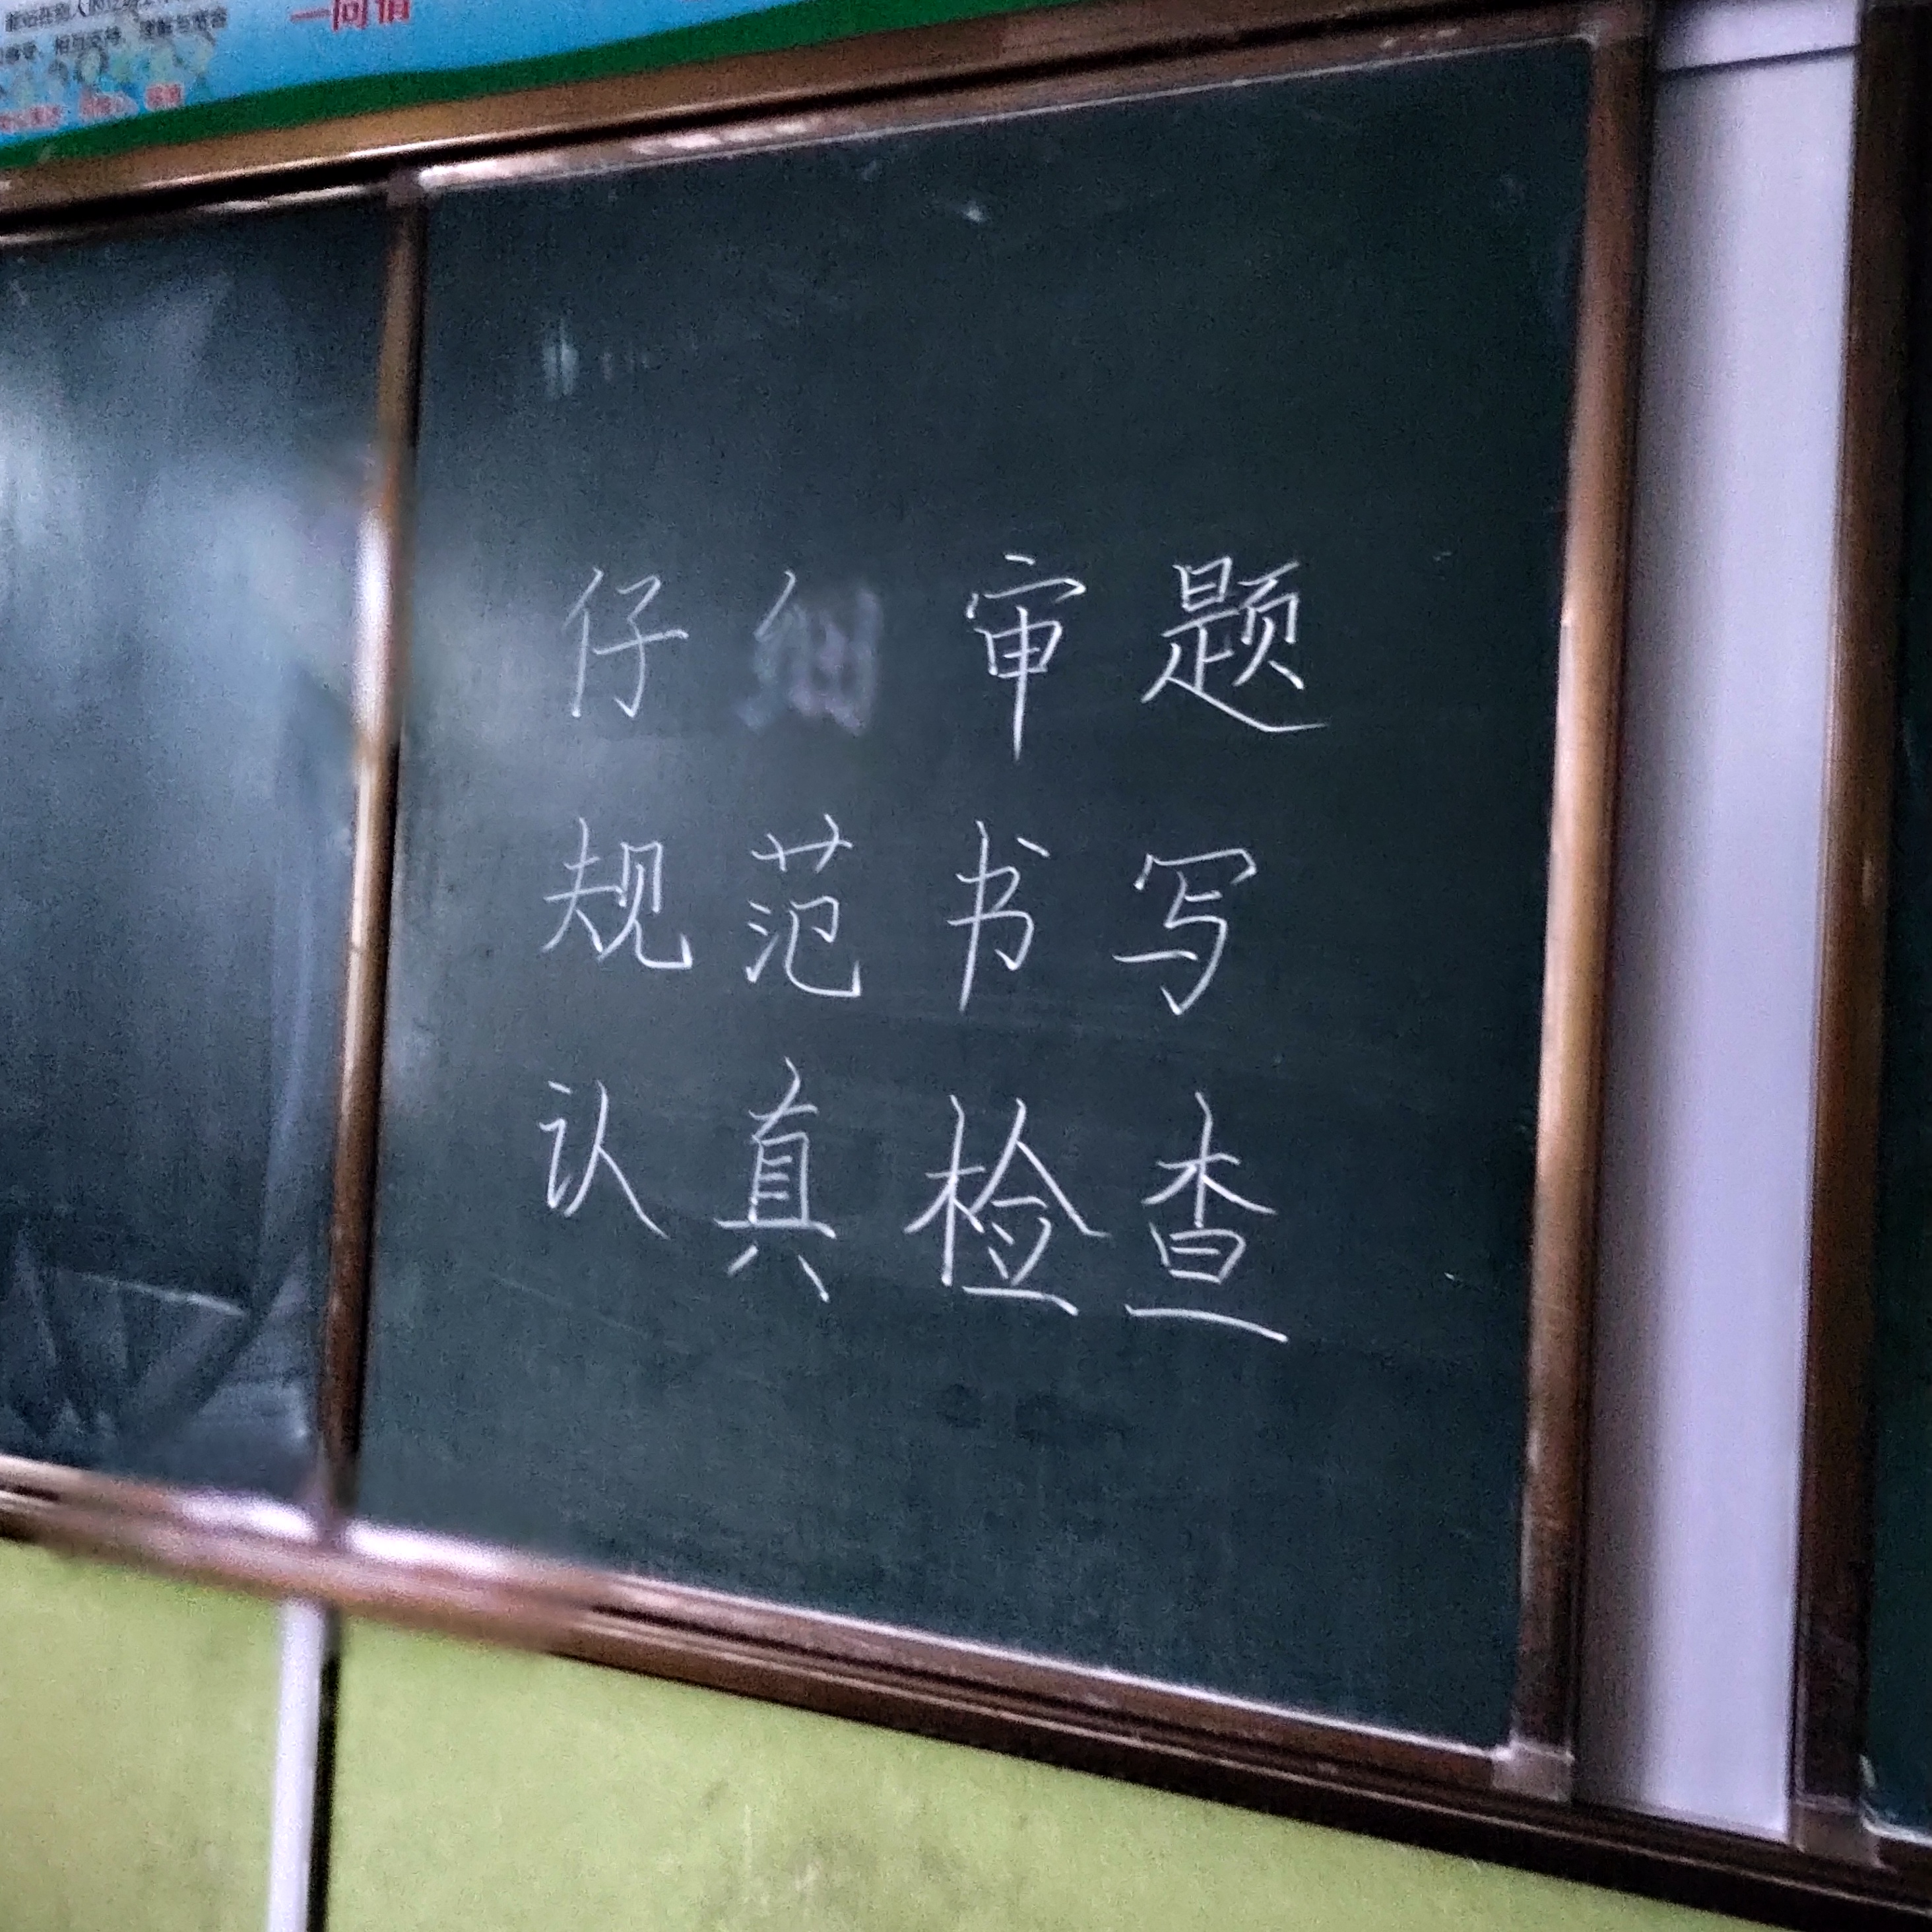 一问倩
仔细审题
规范书写
认真检查